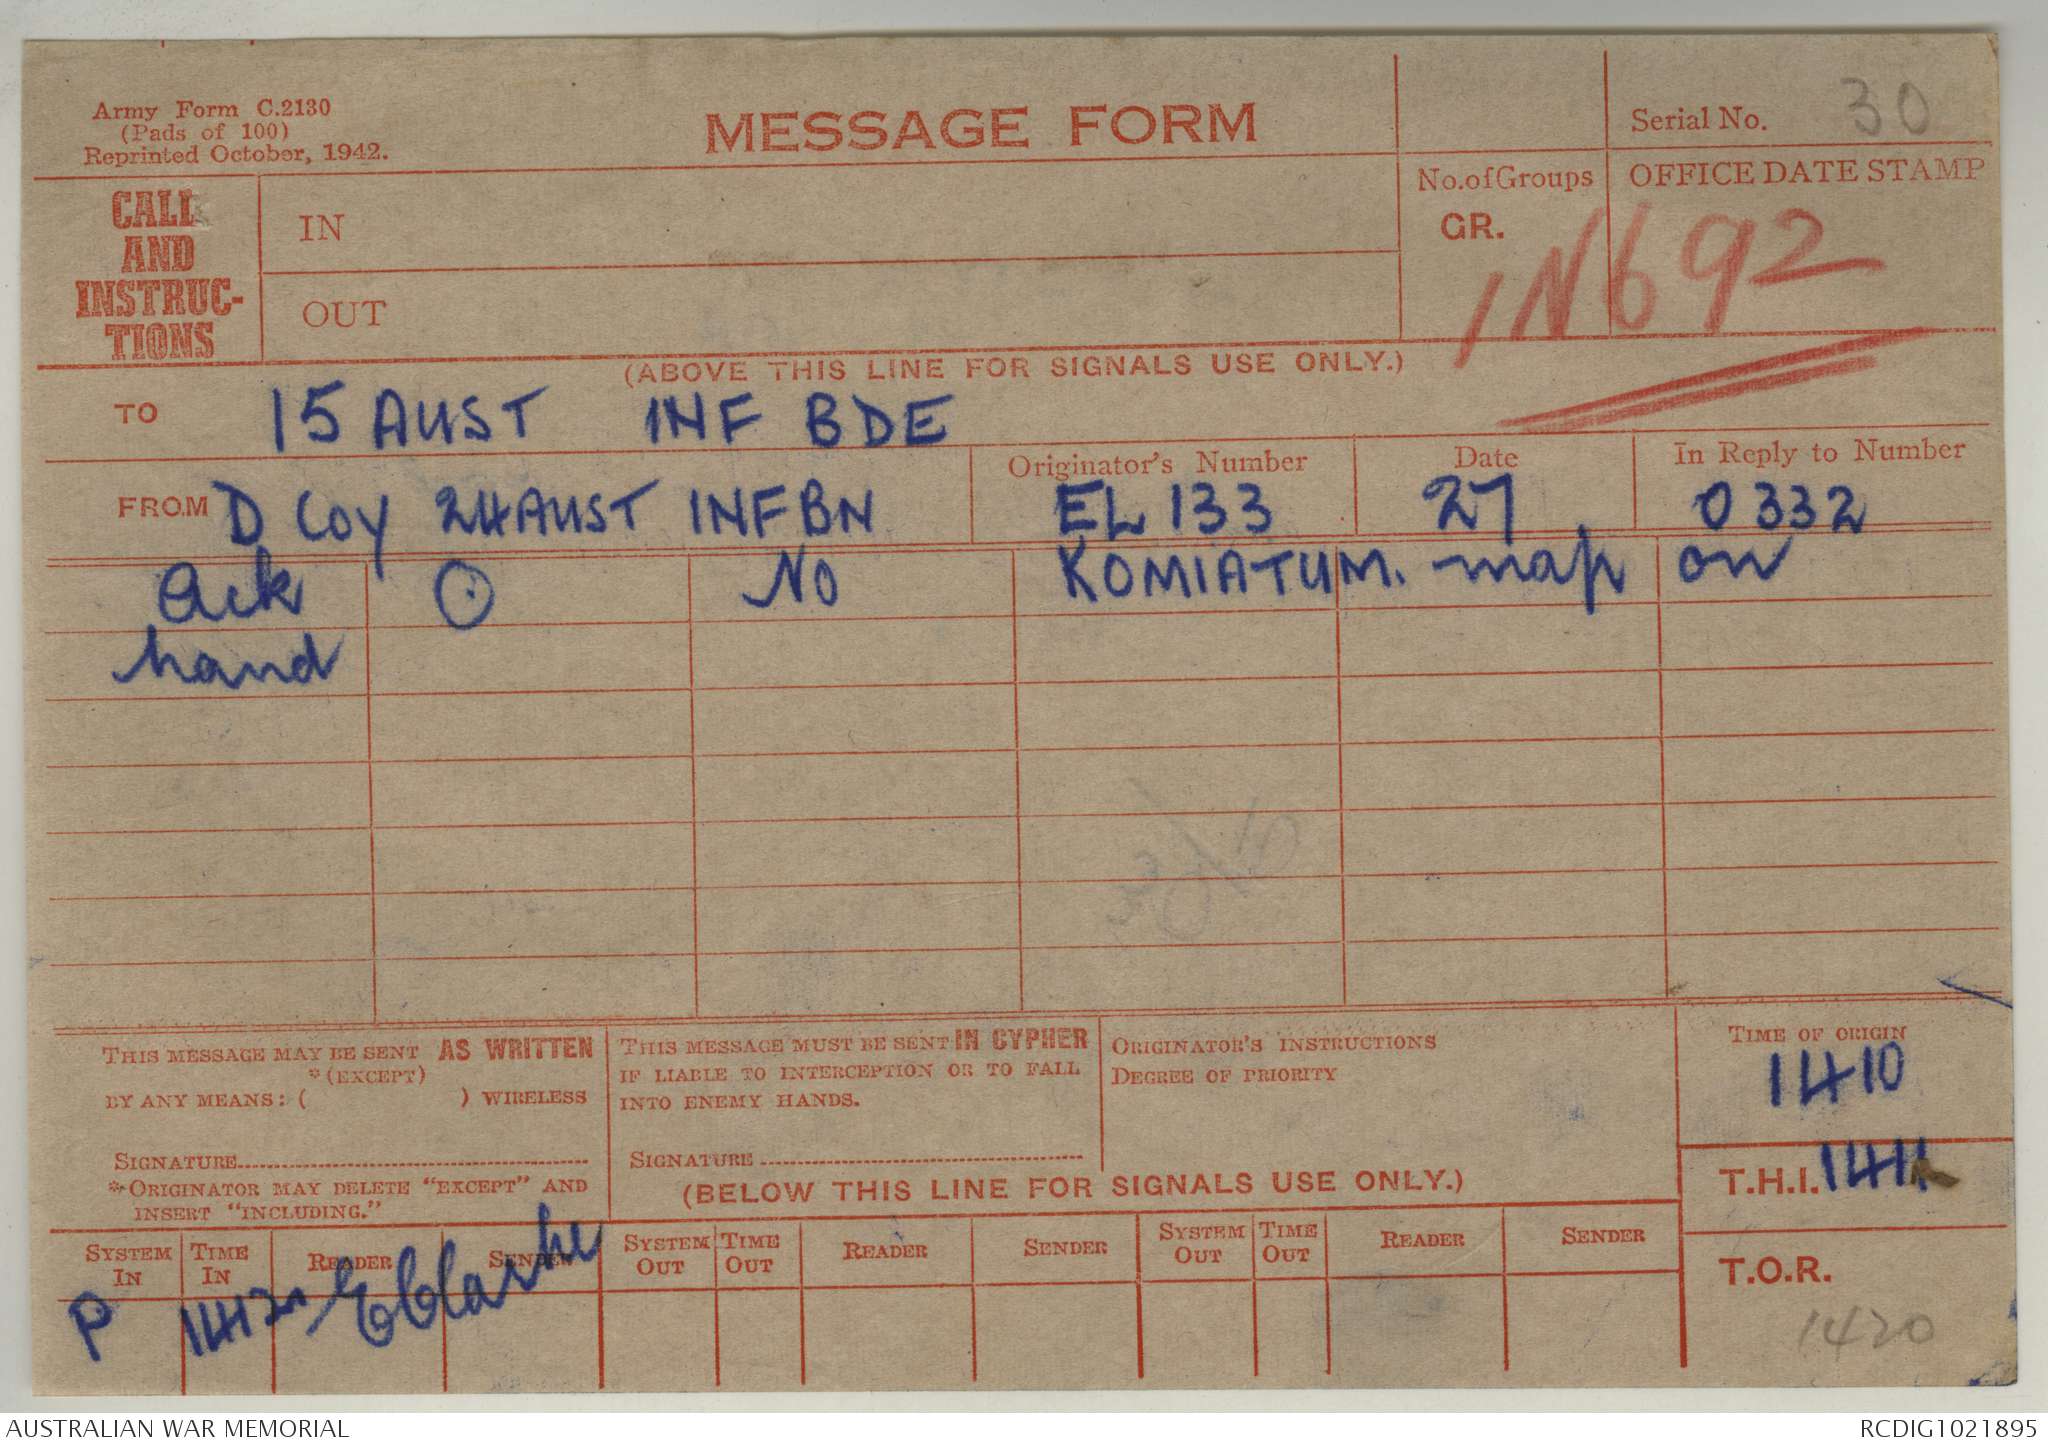 Army Form C.2130
(Pads of 100)
Reprinted October, 1942.
MESSAGE FORM
Serial No. 30
CALL
AND
INSTRUC-
TIONS
IN
OUT
No. of Groups
GR.
OFFICE DATE STAMP
IN692
(ABOVE THIS LINE FOR SIGNALS USE ONLY.)
TO 15 AUST INF BDE
FROM D Coy 24 AUST INF BN
Originator's Number
EL 133
Date
27
In Reply to Number
0332
Ack O No KOMIATUM. map on
hand
THIS MESSAGE MAY BE SENT AS WRITTEN
*(EXCEPT)
BY ANY MEANS: ( ) WIRELESS
SIGNATURE
*ORIGINATOR MAY DELETE "EXCEPT" AND
INSERT "INCLUDING."
THIS MESSAGE MUST BE SENT IN CYPHER
IF LIABLE TO INTERCEPTION OR TO FALL
INTO ENEMY HANDS.
SIGNATURE
ORIGINATOR'S INSTRUCTIONS
DEGREE OF PRIORITY
TIME OF ORIGIN
1410
T.H.I. 1411
(BELOW THIS LINE FOR SIGNALS USE ONLY.)
SYSTEM IN TIME IN READER SENDER SYSTEM OUT TIME OUT READER SENDER SYSTEM OUT TIME OUT READER SENDER
P
T.O.R.
1420
AUSTRALIAN WAR MEMORIAL
RCDIG1021895